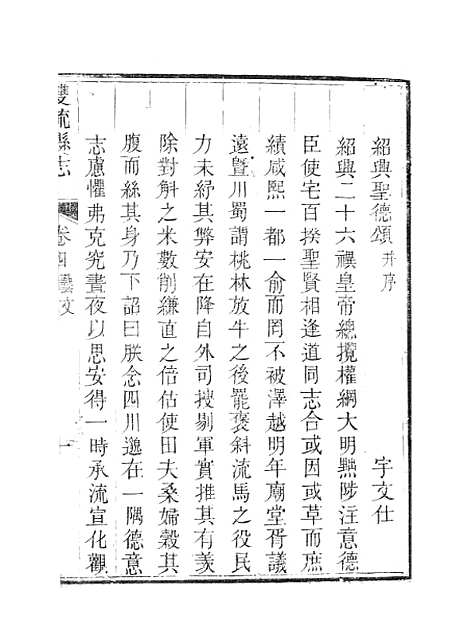 紹興聖德頌并序
宇文仕
紹興二十六禩皇帝總攬權綱大明黜陟注意德
臣使宅百揆聖賢相逢道同志合或因或革而庶
績咸熙一都一俞而罔不被澤越明年廟堂胥議
遠暨川蜀謂桃林放牛之後罷褒斜流馬之役民
力未紓其弊安在降自外司搜剔軍實推其有羨
除對斛之米數削縑直之倍估使田夫桑婦穀其
腹而絲其身乃下詔曰朕念四川邈在一隅德意
志慮懼弗克究晝夜以思安得一時承流宣化觀
雙流縣志
卷四藝文
一